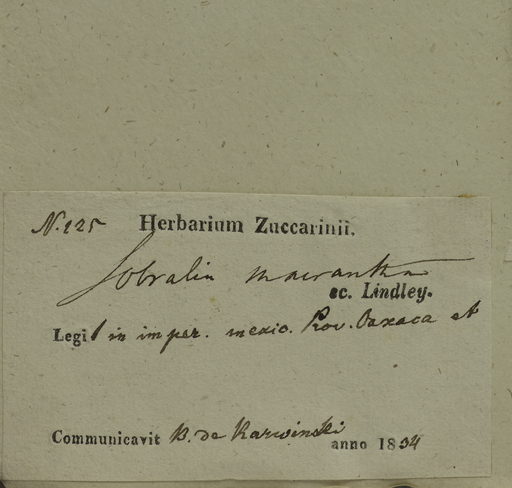 N. 225 Herbarium Zuccarinii.
Sobralia macrantha
ec. Lindley.
Legit in imper. mexic. Prov. Oaxaca et
Communicavit B. de Karwinski anno 1834